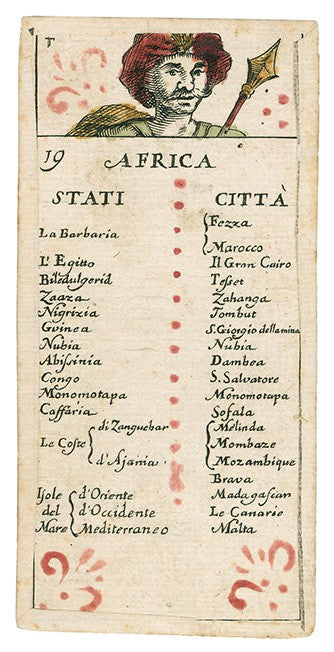 T
19 AFRICA
STATI CITTÀ
Fezza
La Barbaria
Marocco
L'Egitto Il Gran Cairo
Biledulgerid Tesset
Zaaza Zahanga
Nigrizia Tombut
Gvinea S. Giorgio della mina
Nubia Nubia
Abissinia Dambea
Congo S. Salvatore
Monomotapa Monomotapa
Caffaria Sofala
di Zanguebar Melinda
Le Coste Mombaze
d'Ajania Mozambique
Brava
Isole d'Oriente Madagascan
del d'Occidente Le Canarie
Mare Mediterraneo Malta